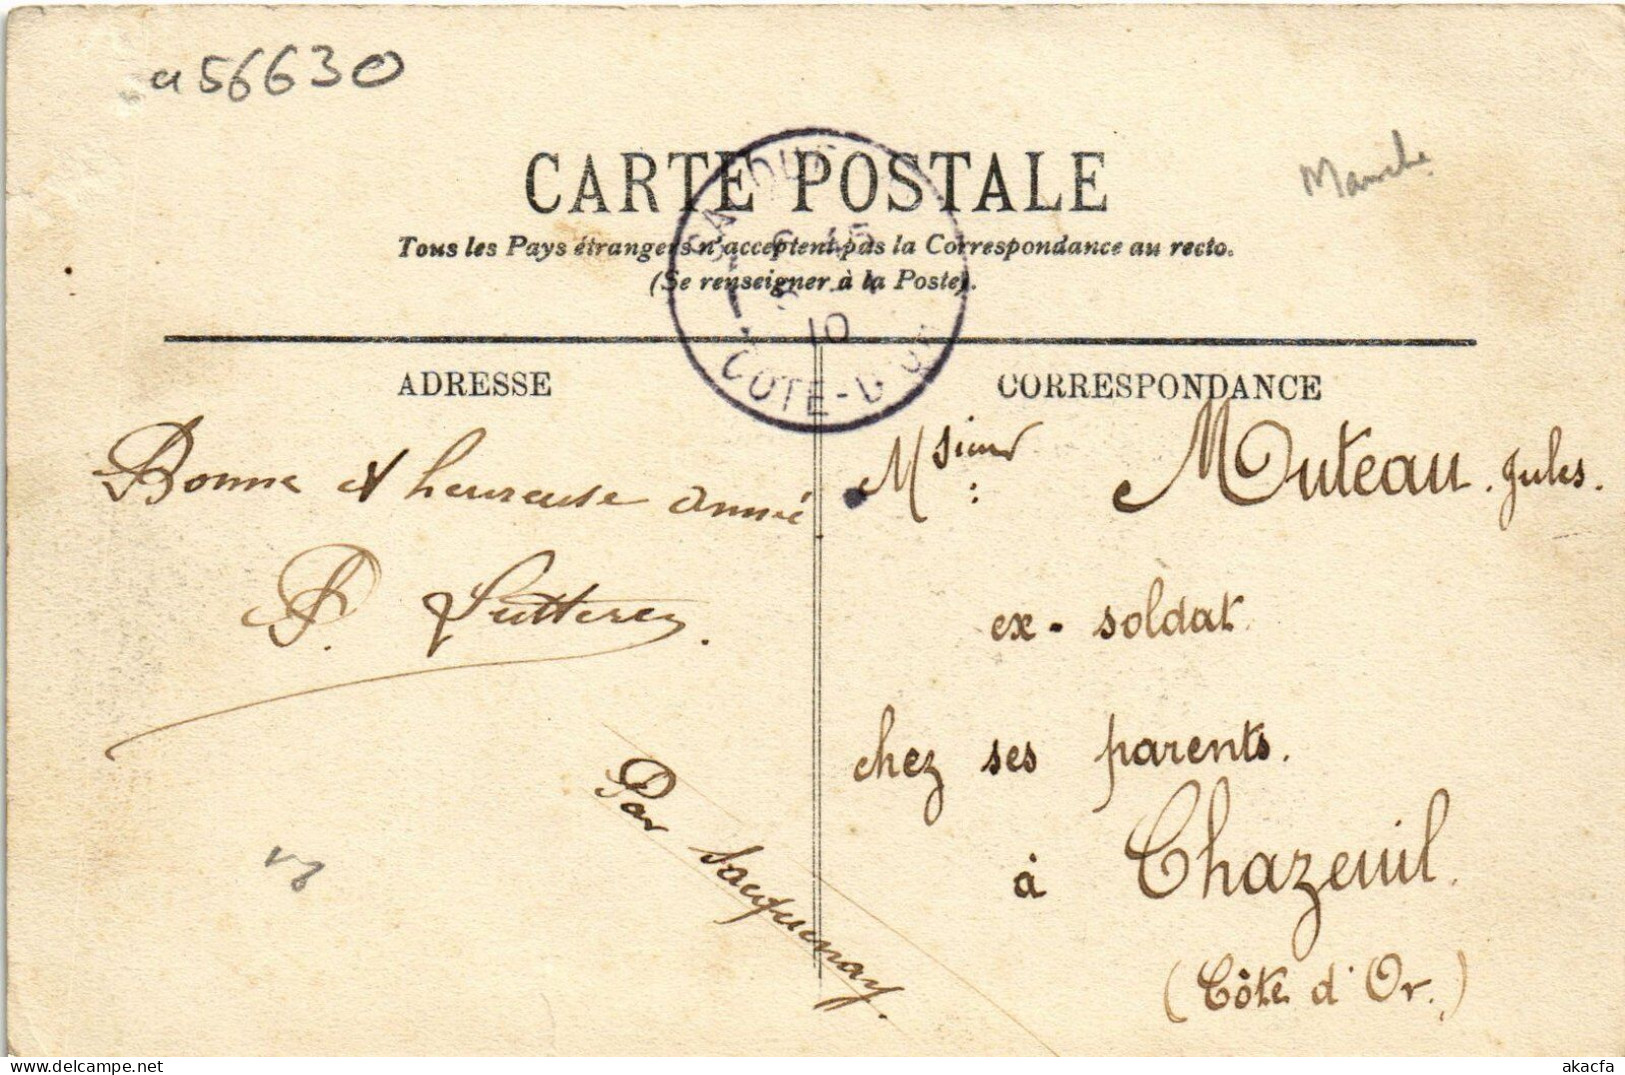 a56630
Manche
CARTE POSTALE
Tous les Pays étrangers n'acceptent pas la Correspondance au recto.
(Se renseigner à la Poste).
10
COTE-D'OR
ADRESSE
CORRESPONDANCE
Bonne et heureuse année
P.
Msieur : Muteau Jules.
ex-soldat
chez ses parents.
à Chazeuil.
(Côte d'Or.)
Par Sacquenay.
akacfa